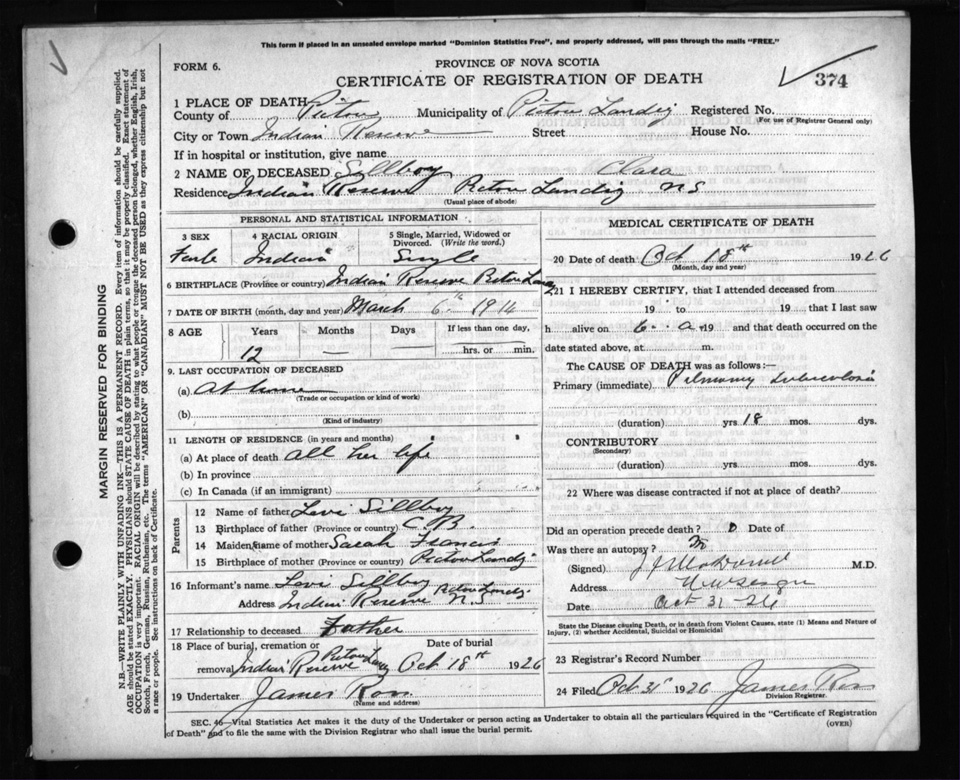 This form if placed in an unsealed envelope marked "Dominion Statistics Free", and properly addressed, will pass through the mails "FREE."
FORM 6.
PROVINCE OF NOVA SCOTIA
CERTIFICATE OF REGISTRATION OF DEATH
374
1 PLACE OF DEATH
County of Pictou Municipality of Pictou Landig Registered No.
(For use of Registrar General only)
City or Town Indian Reserve Street House No.
If in hospital or institution, give name
2 NAME OF DECEASED Sillboy Clara
Residence Indian Reserve Pictou Landig N S
(Usual place of abode)
PERSONAL AND STATISTICAL INFORMATION
3 SEX 4 RACIAL ORIGIN 5 Single, Married, Widowed or Divorced. (Write the word.)
Indian Single
6 BIRTHPLACE (Province or country) Indian Reserve Pictou Landg
7 DATE OF BIRTH (month, day and year) March 6th 1914
8 AGE Years Months Days If less than one day,
12 — — hrs. or min.
9. LAST OCCUPATION OF DECEASED
(a) At home
(Trade or occupation or kind of work)
(b)
(Kind of industry)
11 LENGTH OF RESIDENCE (in years and months)
(a) At place of death all her life
(b) In province
(c) In Canada (if an immigrant)
Parents
12 Name of father Levi Sillboy
13 Birthplace of father (Province or country) C. B.
14 Maiden name of mother Sarah Francis
15 Birthplace of mother (Province or country) Pictou Landg
16 Informant's name Levi Sillboy
Address Indian Reserve Pictou Landg. N. S
17 Relationship to deceased Father
18 Place of burial, cremation or removal Date of burial
Indian Reserve Pictou Landg Oct 18th 1926
19 Undertaker James Ross
(Name and address)
MEDICAL CERTIFICATE OF DEATH
20 Date of death Oct 18th 1926
(Month, day and year)
21 I HEREBY CERTIFY, that I attended deceased from
19 to 19 that I last saw
h alive on 19 and that death occurred on the
date stated above, at m.
The CAUSE OF DEATH was as follows:—
Primary (immediate) Pulmonary tuberculosis
(duration) yrs 18 mos. dys.
CONTRIBUTORY
(Secondary)
(duration) yrs. mos. dys.
22 Where was disease contracted if not at place of death?
Did an operation precede death? Date of
Was there an autopsy?
(Signed) M.D.
Address
Date Oct 31-26
State the Disease causing Death, or in death from Violent Causes, state (1) Means and Nature of Injury, (2) whether Accidental, Suicidal or Homicidal
23 Registrar's Record Number
24 Filed Oct 31st 1926 James Ross
Division Registrar.
SEC. 46—Vital Statistics Act makes it the duty of the Undertaker or person acting as Undertaker to obtain all the particulars required in the "Certificate of Registration
of Death" and to file the same with the Division Registrar who shall issue the burial permit.
(OVER)
MARGIN RESERVED FOR BINDING
N.B.—WRITE PLAINLY WITH UNFADING INK—THIS IS A PERMANENT RECORD. Every item of information should be carefully supplied.
AGE should be stated EXACTLY. PHYSICIANS should STATE CAUSE OF DEATH in plain terms, so that it may be properly classified. Exact statement of
OCCUPATION is very important. RACIAL ORIGIN will be described by stating to what people or tongue the deceased person belonged, whether English, Irish,
Scotch, French, German, Russian, Ruthenian, etc. The terms "AMERICAN" OR "CANADIAN" MUST NOT BE USED as they express citizenship but not
a race or people. See instructions on back of Certificate.